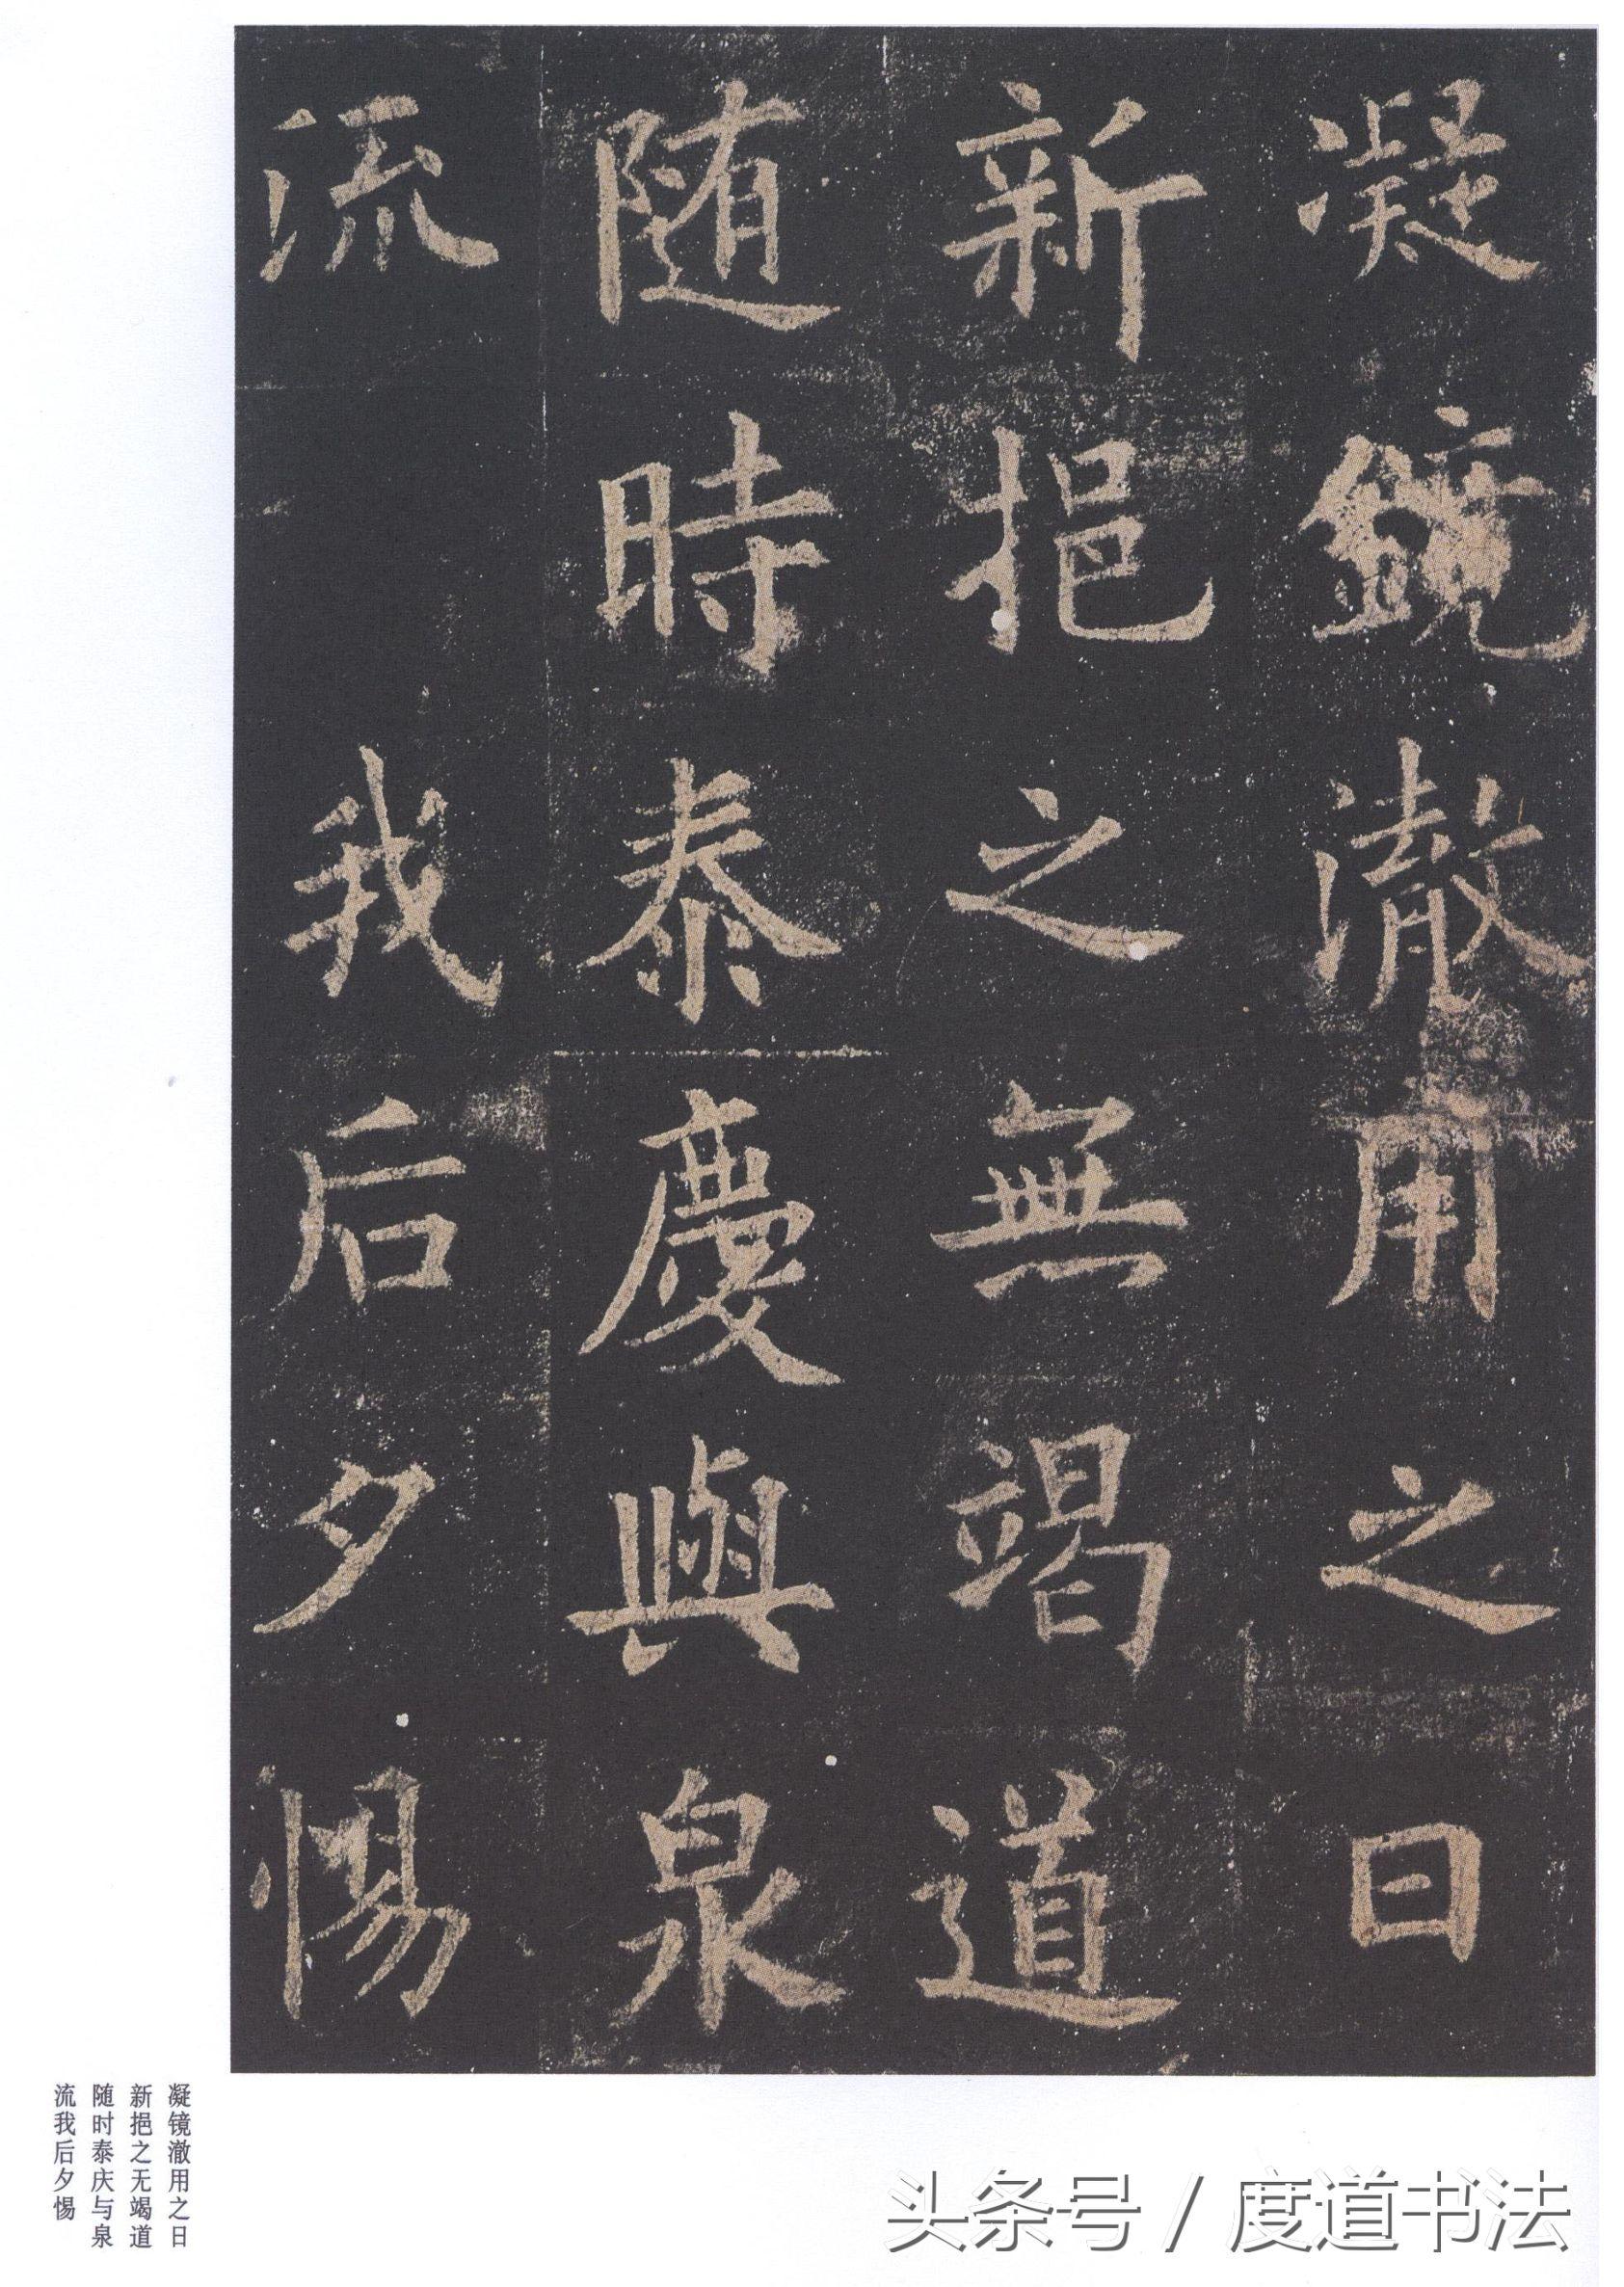 凝鏡澈用之日
新挹之無竭道
随時泰慶與泉
流我后夕惕
凝镜澈用之日
新挹之无竭道
随时泰庆与泉
流我后夕惕
头条号 / 度道书法